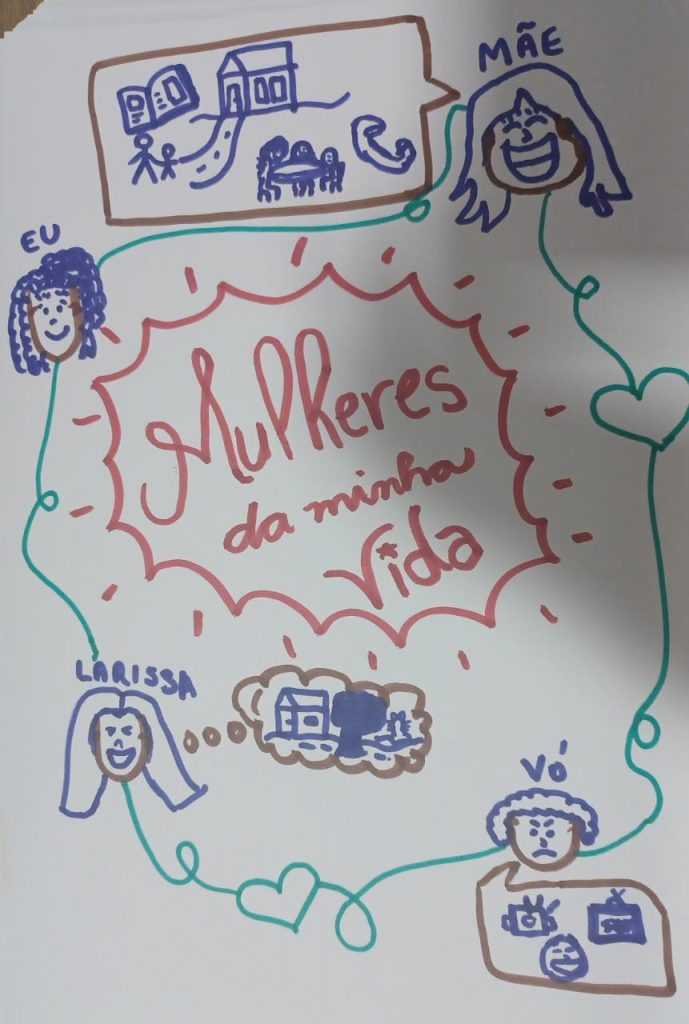 MÃE
EU
Mulheres
da minha
Vida
LARISSA
VÓ